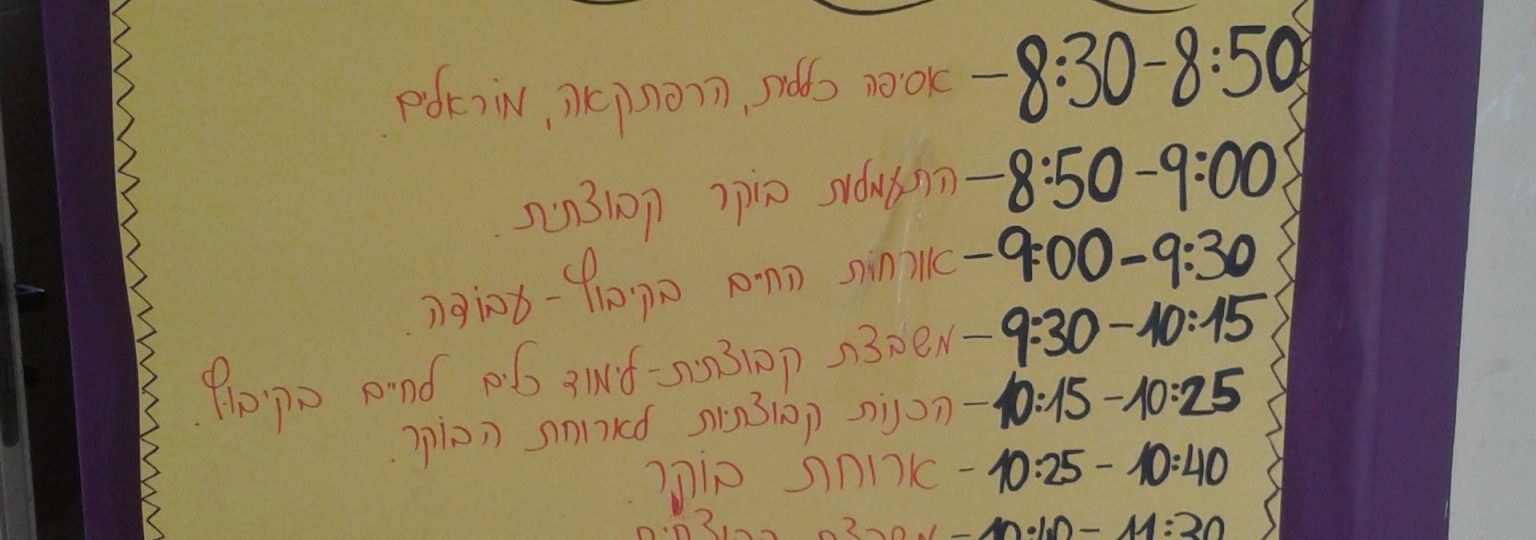 8:30-8:50 – אסיפה כללית, הרפתקאה, מוראלים.
8:50-9:00 – התעמלות בוקר קבוצתית.
9:00-9:30 – אורחות החיים בקיבוץ - עבודה.
9:30-10:15 – משבצת קבוצתית - לימוד כלים לחיים בקיבוץ.
10:15-10:25 – הכנות קבוצתיות לארוחת הבוקר.
10:25-10:40 - ארוחת בוקר.
10:40-11:30 - משבצת קבוצתית